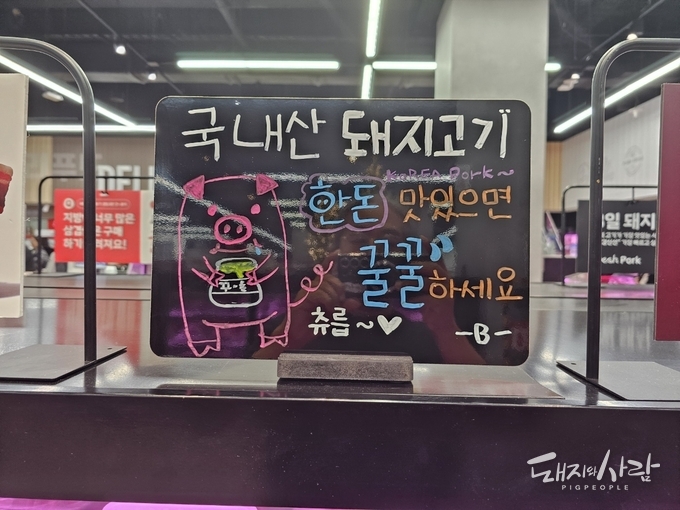 국내산 돼지고기
KOREA PORK~
한돈 맛있으면
꿀꿀
하세요
츄릅~♡
-B-
지방이 너무 많은
삼겹살은 구매
하기 꺼려져요!
DELI
일 돼지
esh Pork
돼지와사람
PIGPEOPLE